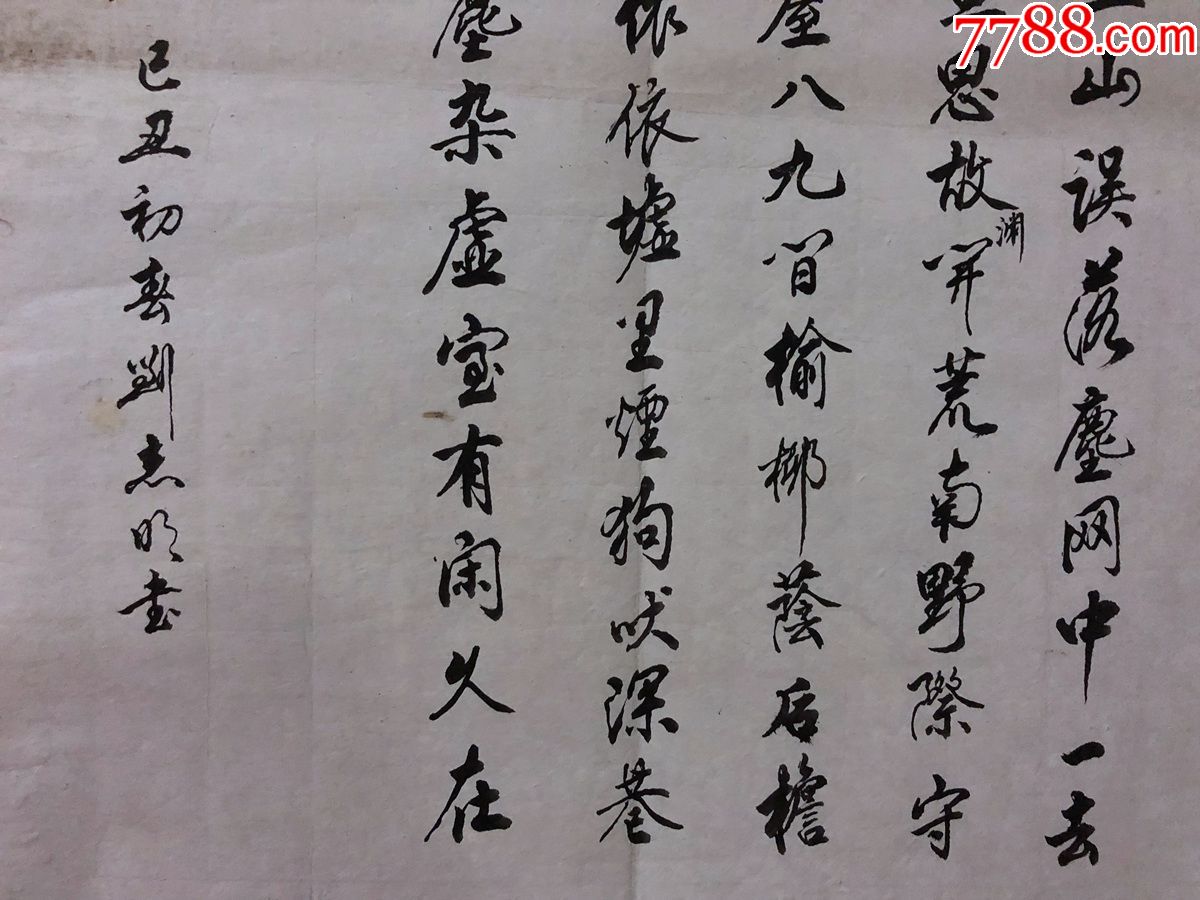 7788.com
山误落塵网中一去
思故渊开荒南野際守
屋八九间榆柳蔭后檐
依依墟里煙狗吠深巷
塵杂虚室有闲久在
己丑初春劉志明书